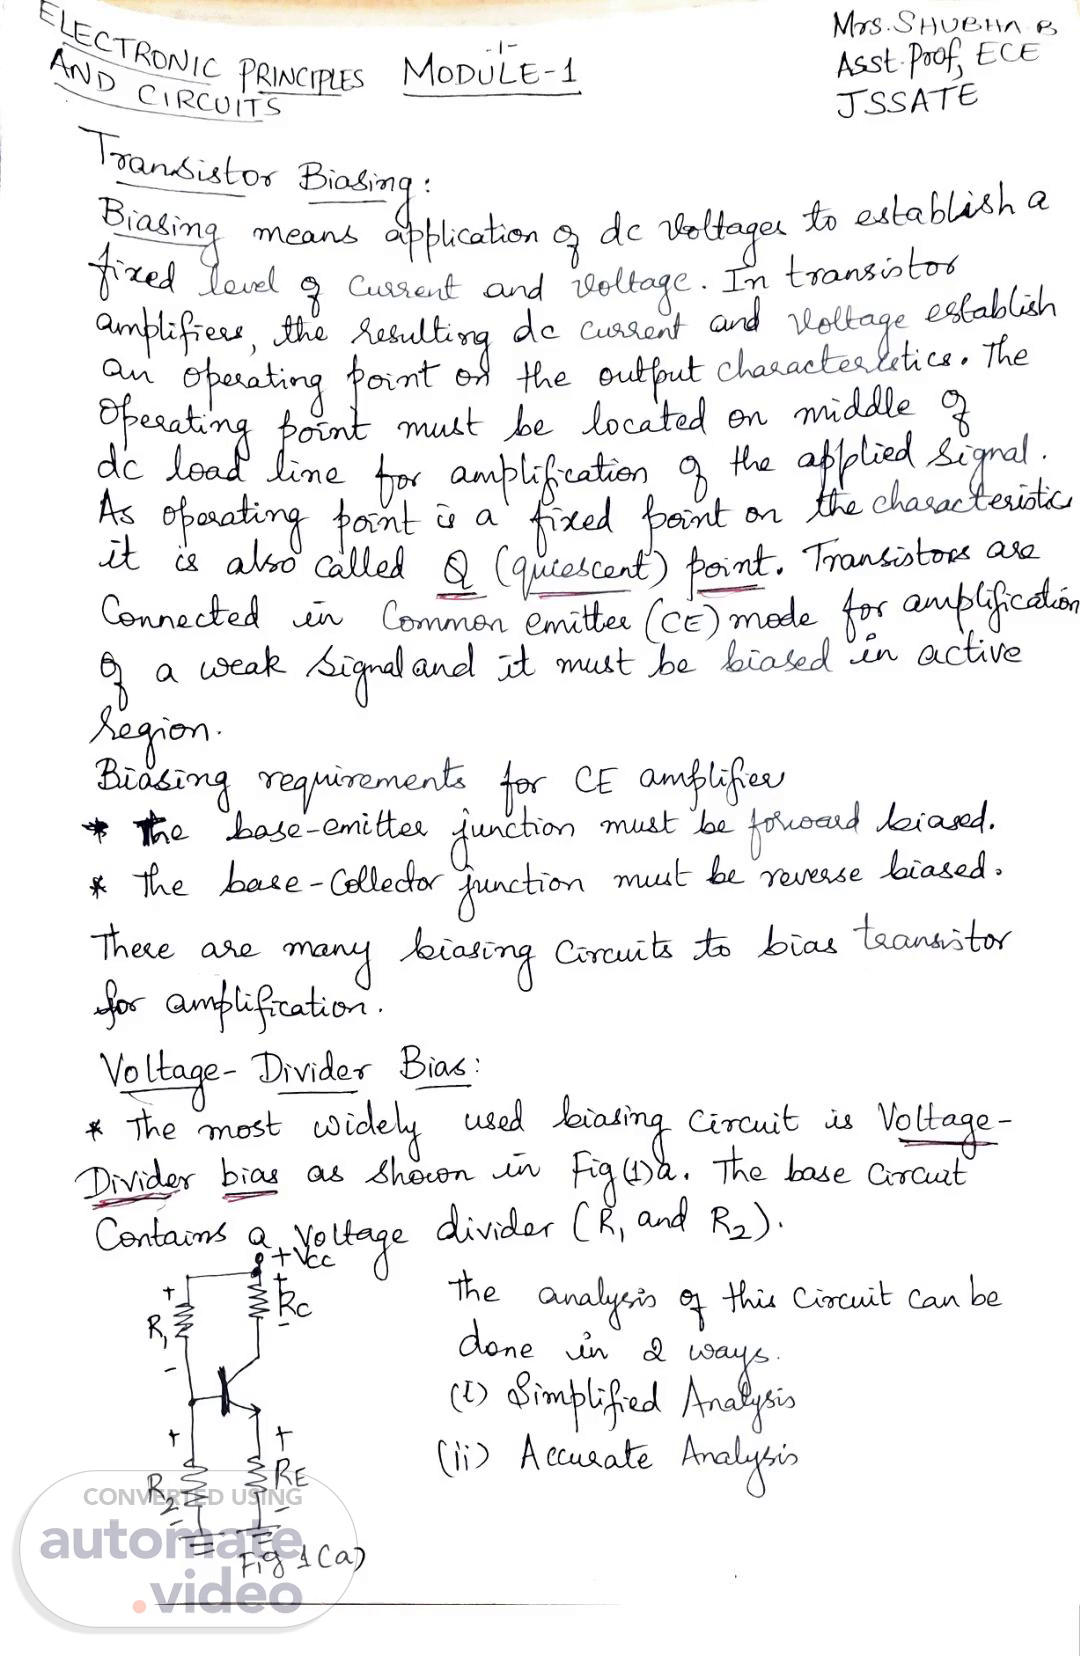 ELECTRONIC PRINCIPLES
AND CIRCUITS
-1-
MODULE-1
Mrs. SHUBHA B
Asst. Prof, ECE
JSSATE
Transistor Biasing:
Biasing means application of dc voltages to establish a
fixed level of current and voltage. In transistor
amplifiers, the resulting dc current and voltage establish
an operating point on the output characteristics. The
operating point must be located on middle of
dc load line for amplification of the applied signal.
As operating point is a fixed point on the characteristic
it is also called Q (quiescent) point. Transistors are
Connected in Common emitter (CE) mode for amplification
of a weak signal and it must be biased in active
region.
Biasing requirements for CE amplifier
* The base-emitter junction must be forward biased.
* The base-Collector junction must be reverse biased.
There are many biasing Circuits to bias transistor
for amplification.
Voltage-Divider Bias:
* The most widely used biasing circuit is Voltage-
Divider bias as shown in Fig(1)a. The base circuit
Contains a voltage divider (R1 and R2).
+Vcc
+ +
R1 RC
- -
+ +
R2 RE
- -
Fig 1(a)
The analysis of this circuit can be
done in 2 ways.
(i) Simplified Analysis
(ii) Accurate Analysis
CONVERTED USING
automate
.video